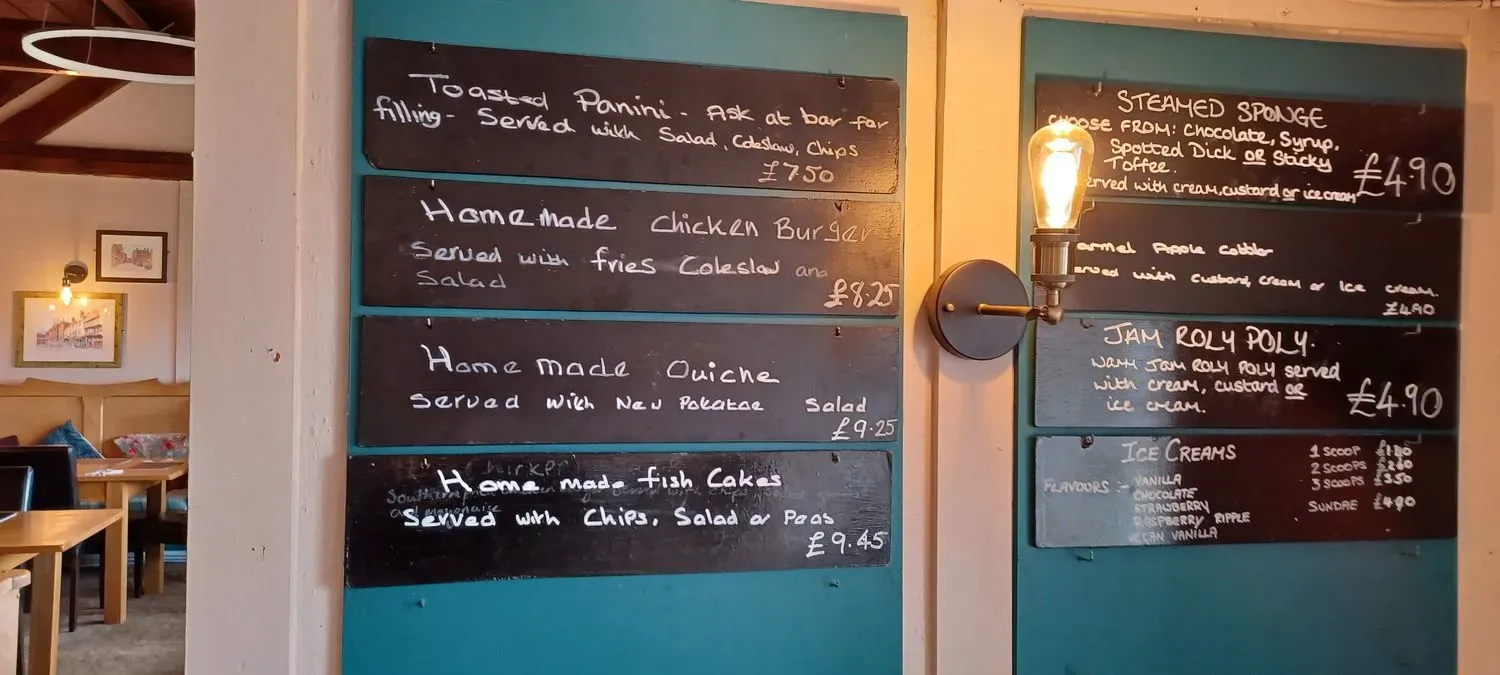 Toasted Panini - Ask at bar for
filling - Served with Salad, Coleslaw, Chips
£7.50
Homemade Chicken Burger
Served with fries Coleslaw and
Salad
£8.25
Home made Quiche
Served with New Potatoe Salad
£9.25
Home made fish Cakes
Served with Chips, Salad or Peas
£9.45
STEAMED SPONGE
CHOOSE FROM: Chocolate, Syrup,
Spotted Dick OR Sticky
Toffee.
erved with cream, custard or ice cream
£4.90
armel Apple Cobbler
erved with Custard, Cream or Ice cream.
£4.90
JAM ROLY POLY.
Warm JAM ROLY POLY served
with cream, custard OR
ice cream.
£4.90
ICE CREAMS
FLAVOURS :- VANILLA
CHOCOLATE
STRAWBERRY
RASPBERRY RIPPLE
VEGAN VANILLA
1 SCOOP
2 SCOOPS
3 SCOOPS
SUNDAE